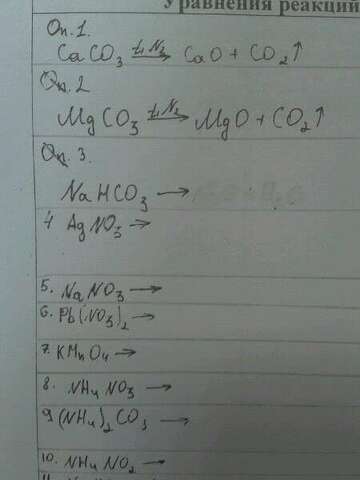 Уравнения реакций
Оп. 1.
CaCO₃ t, N₂→ CaO + CO₂↑
Оп. 2
MgCO₃ t, N₂→ MgO + CO₂↑
Оп. 3.
NaHCO₃ →
4 AgNO₃ →
5. NaNO₃ →
6. Pb(NO₃)₂ →
7. KMnO₄ →
8. NH₄NO₃ →
9. (NH₄)₂CO₃ →
10. NH₄NO₂ →